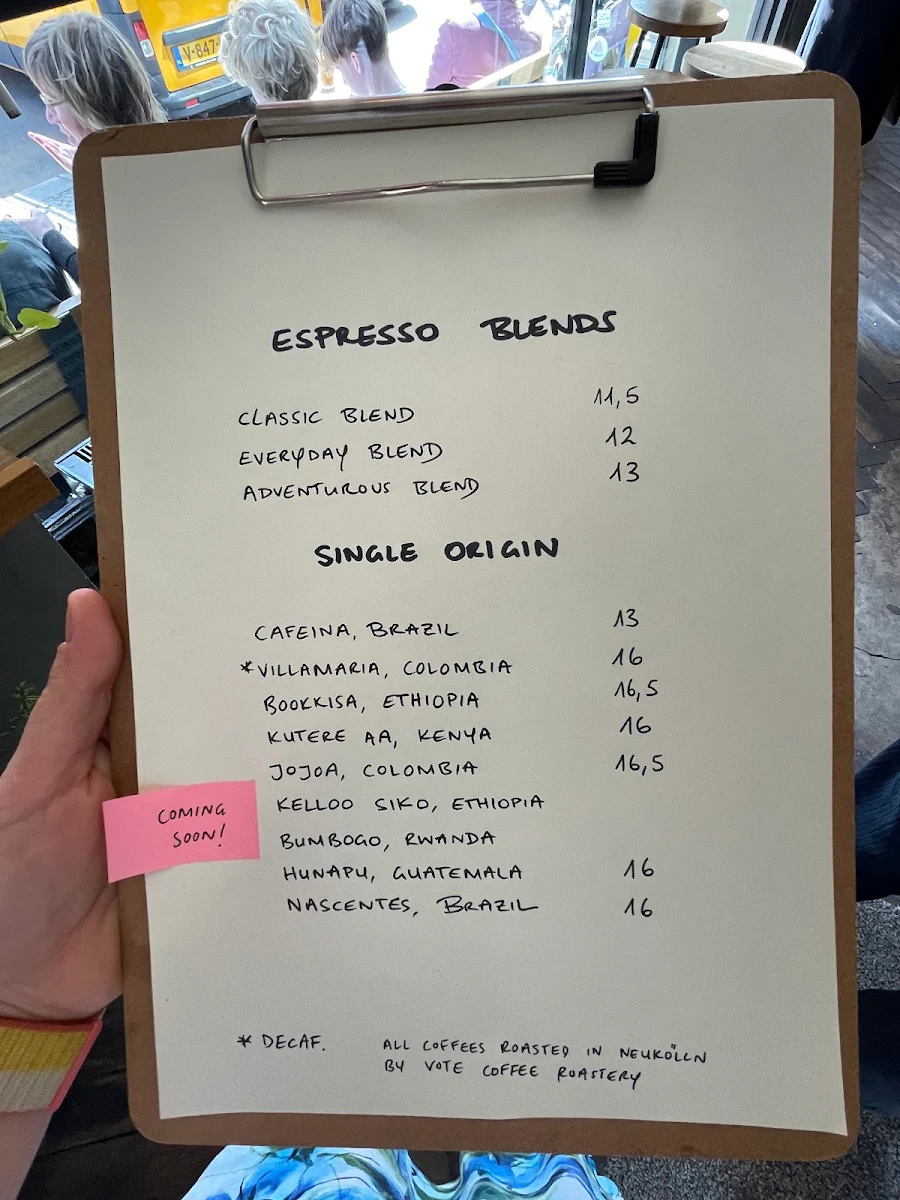 V-847
ESPRESSO BLENDS
CLASSIC BLEND 11,5
EVERYDAY BLEND 12
ADVENTUROUS BLEND 13
SINGLE ORIGIN
CAFEINA, BRAZIL 13
*VILLAMARIA, COLOMBIA 16
BOOKKISA, ETHIOPIA 16,5
KUTERE AA, KENYA 16
JOJOA, COLOMBIA 16,5
KELLOO SIKO, ETHIOPIA
COMING
SOON!
BUMBOGO, RWANDA
HUNAPU, GUATEMALA 16
NASCENTES, BRAZIL 16
* DECAF.
ALL COFFEES ROASTED IN NEUKÖLLN
BY VOTE COFFEE ROASTERY